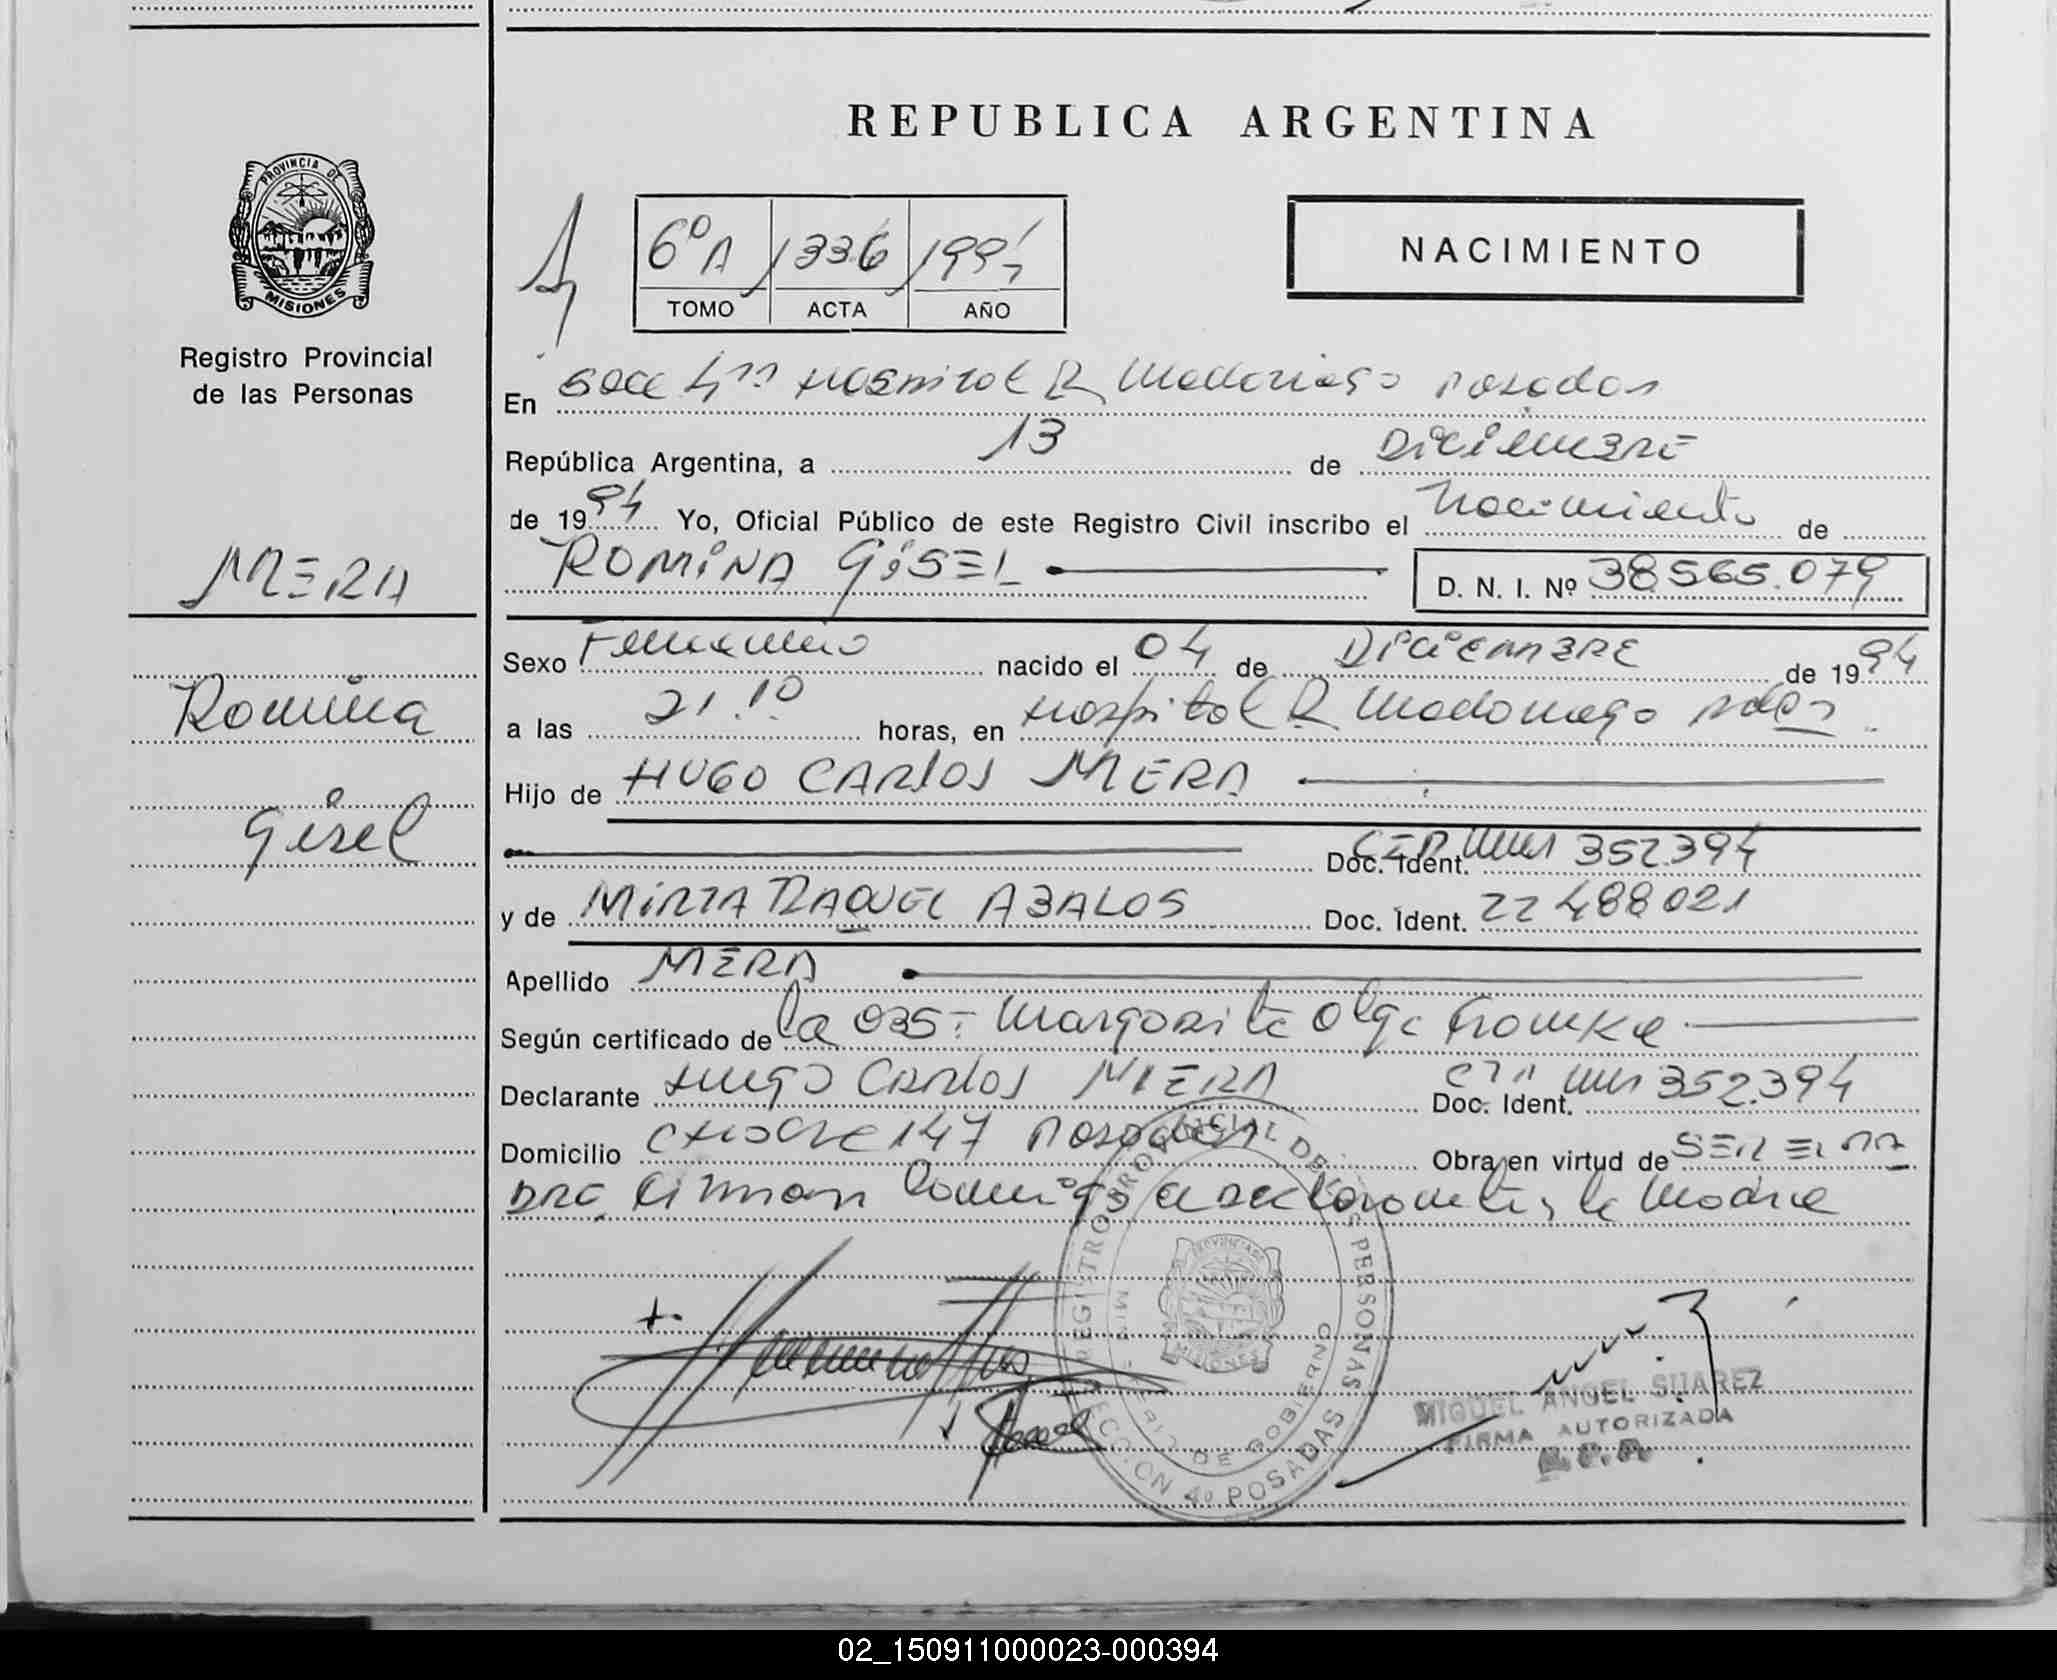 REPUBLICA ARGENTINA
PROVINCIA DE
MISIONES
Registro Provincial
de las Personas
6º A 1336 1994
TOMO ACTA AÑO
NACIMIENTO
En Secc 4ta Hospital R Madariaga Posadas
República Argentina, a 13 de DICIEMBRE
de 1994 Yo, Oficial Público de este Registro Civil inscribo el Nacimiento de
ROMINA GISEL D. N. I. Nº 38565.079
MERA
Romina
Gisel
Sexo Femenino nacido el 04 de DICIEMBRE de 1994
a las 21.10 horas, en Hospital R Madariaga Pdas
Hijo de HUGO CARLOS MERA
Doc. Ident. 352394
y de MIRTA RAQUEL ABALOS Doc. Ident. 22488021
Apellido MERA
Según certificado de la OBST Margarita Olga
Declarante HUGO CARLOS MERA Doc. Ident. 352.394
Domicilio 147 Posadas Obra en virtud de SER EL
la Madre
REGISTRO PROVINCIAL DE LAS PERSONAS
MINISTERIO DE GOBIERNO
PROVINCIA DE
MISIONES
SECCION 4º POSADAS
MIGUEL ANGEL SUAREZ
FIRMA AUTORIZADA
02_150911000023-000394